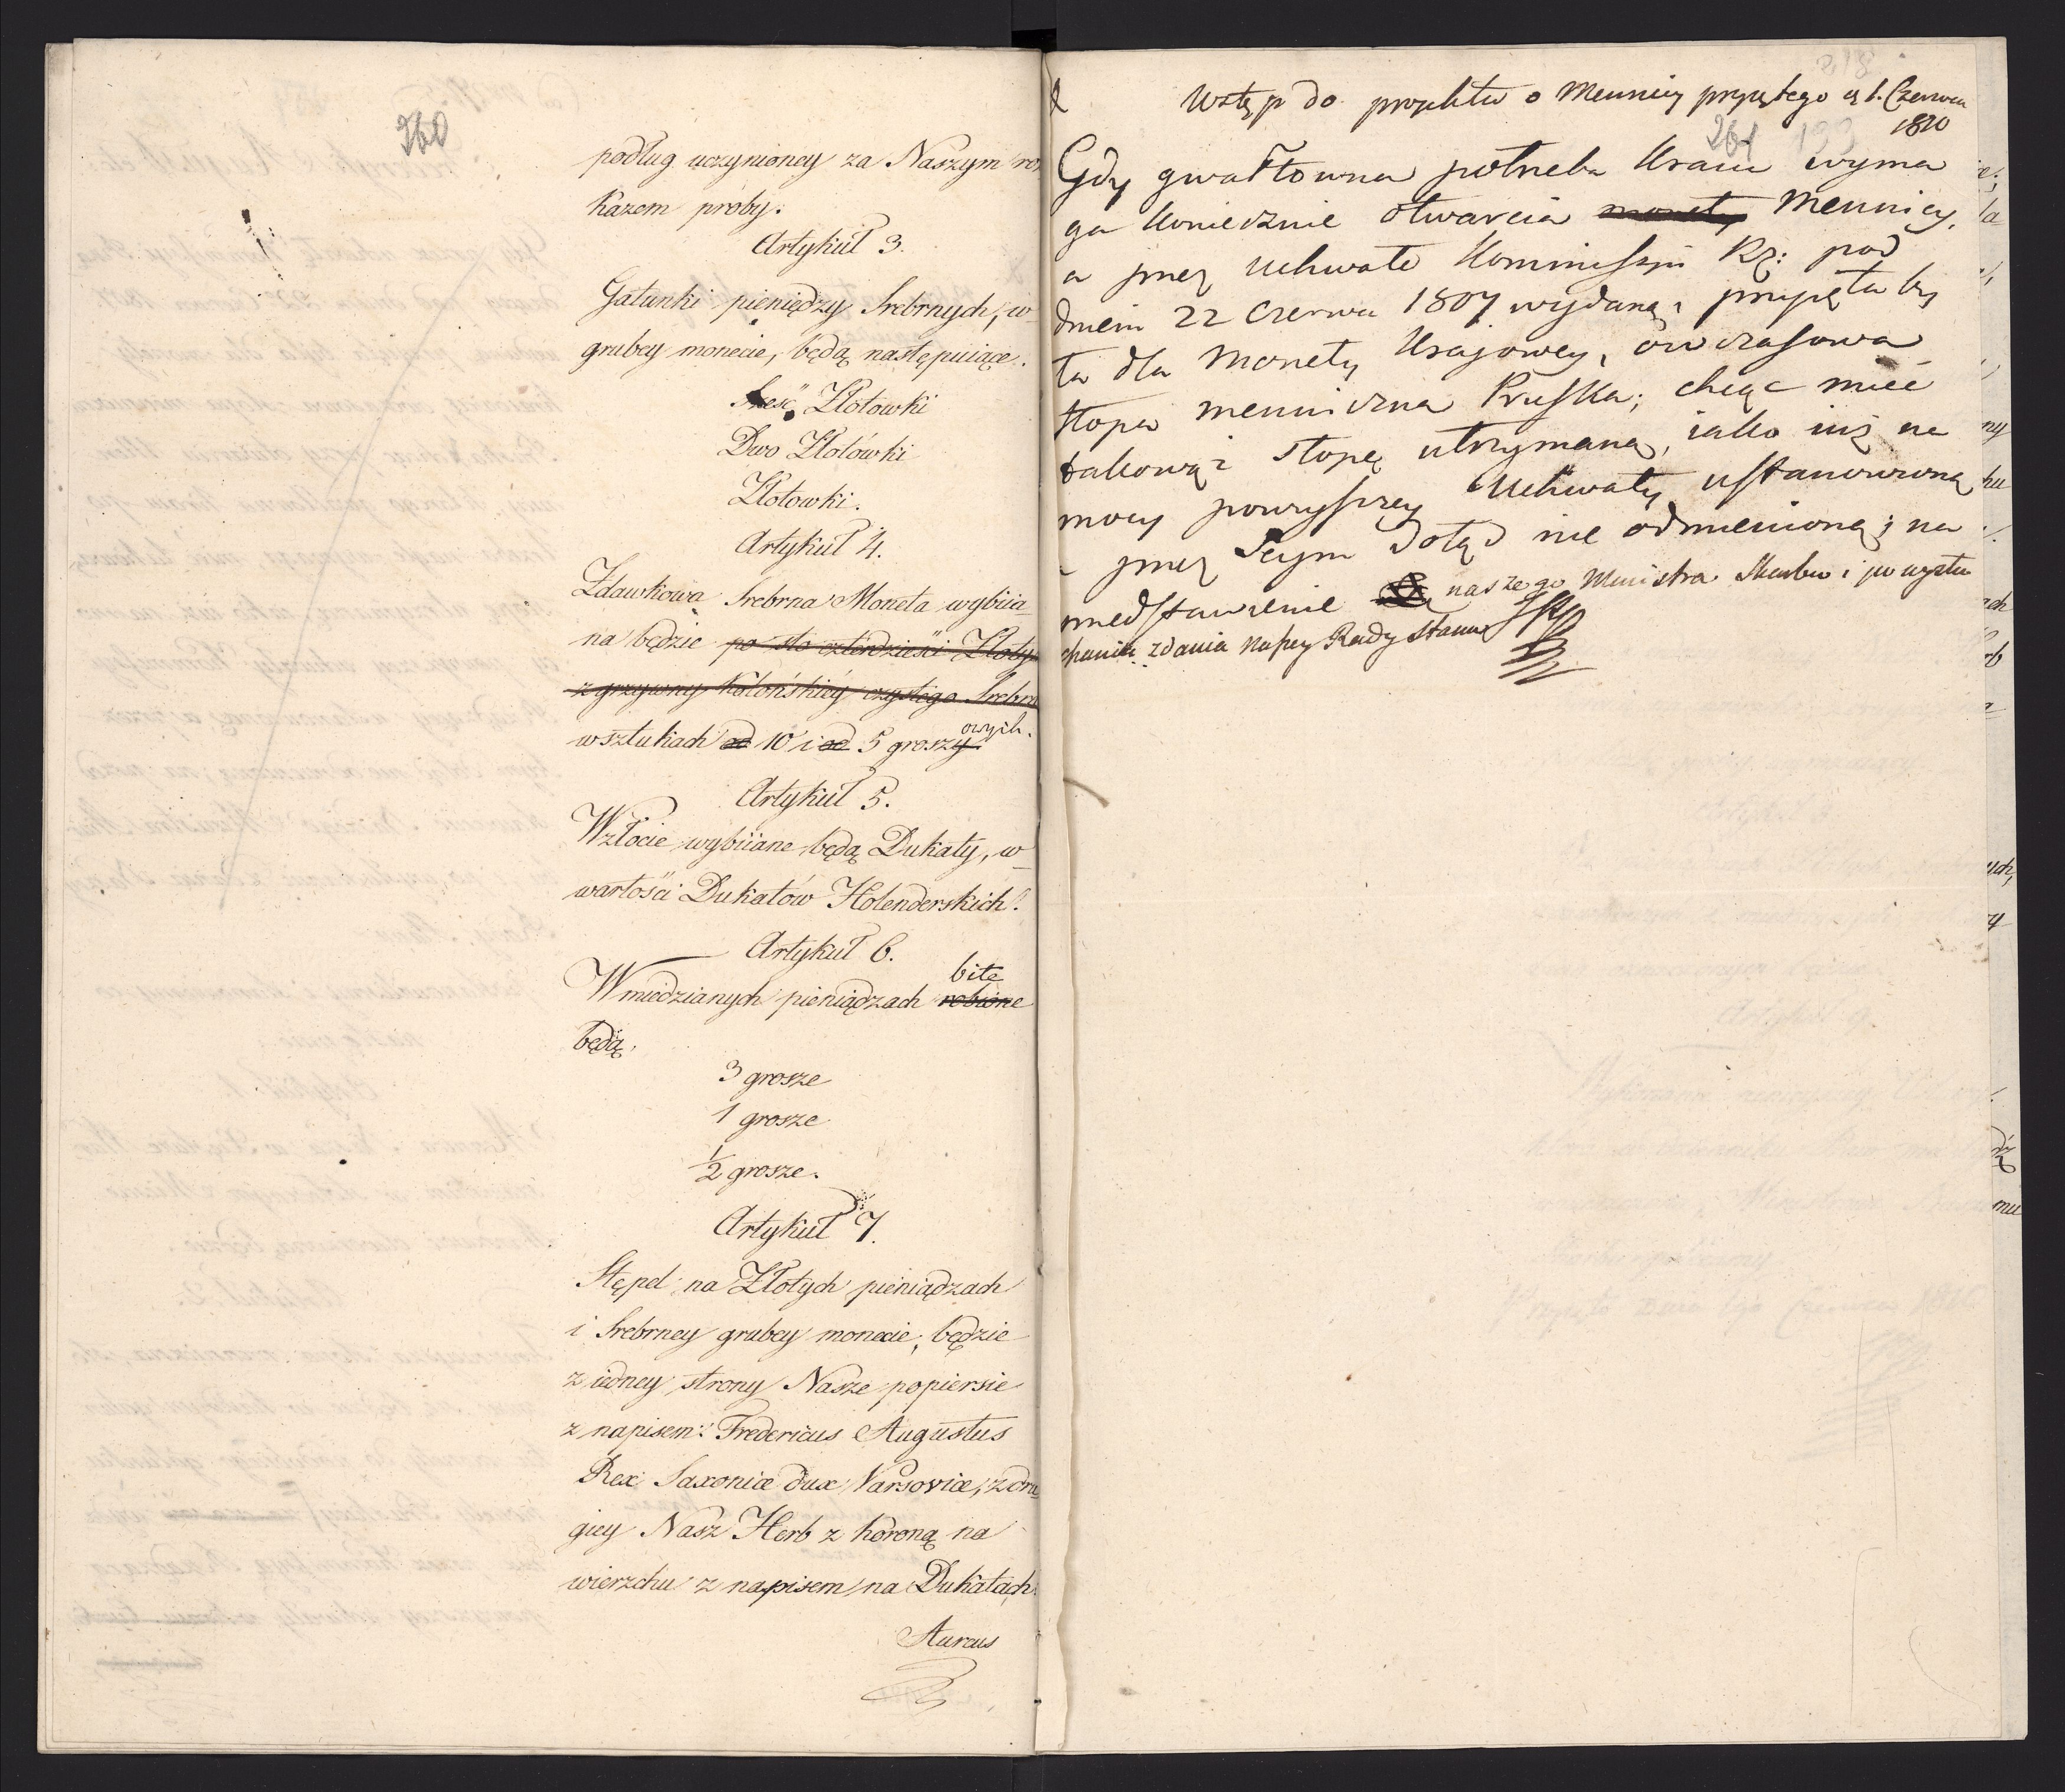 260
podług uczynioney za Naszym ro
kazem próby.
Artykuł 3.
Gatunki pieniędzy Srebrnych, w
grubey monecie, będą następuiące.
Sześć Złotowki
Dwo Złotówki
Złotowki.
Artykuł 4.
Zdawkowa Srebrna Moneta wybiia
na będzie po sto czterdzieści Złoty
z grzywny Kolońskiey czystego Srebra
w sztukach od 10 i od 5 groszy owych.
Artykuł 5.
W złocie wybiiane będą Dukaty, w
wartości Dukatów Holenderskich.
Artykuł 6.
W miedzianych pieniądzach robione bite
będą,
3 grosze
1 grosze
1/2 grosze.
Artykuł 7.
Stępel na Złotych pieniądzach
i Srebrney grubey monecie, będzie
z iedney strony Nasze popiersie
z napisem: Fredericus Augustus
Rex Saxoniæ dux Varsoviæ, z dru
giey Nasz Herb z koroną na
wierzchu z napisem na Dukatach
Aureus
218
Wstęp do projektu o Mennicy przyjętego 1. Czerwca
1810
261 193
Gdy gwałtowna potrzeba Kraiu wyma
ga koniecznie otwarcia monety Mennicy,
a przez uchwałę Kommissyi Rz: pod
dniem 22 Czerwca 1807 wydaną, przyięta by
ła dla Monety Krajowey, ów czasowa
stopa mennicza Pruska; chcąc mieć
takową stopę utrzymaną, iako iuż na
mocy powyższey Uchwały ustanowioną
i przez Seym dotąd nie odmienioną; na
przedstawienie naszego Ministra Skarbu i po wysłu
chaniu zdania Naszey Rady Stanu